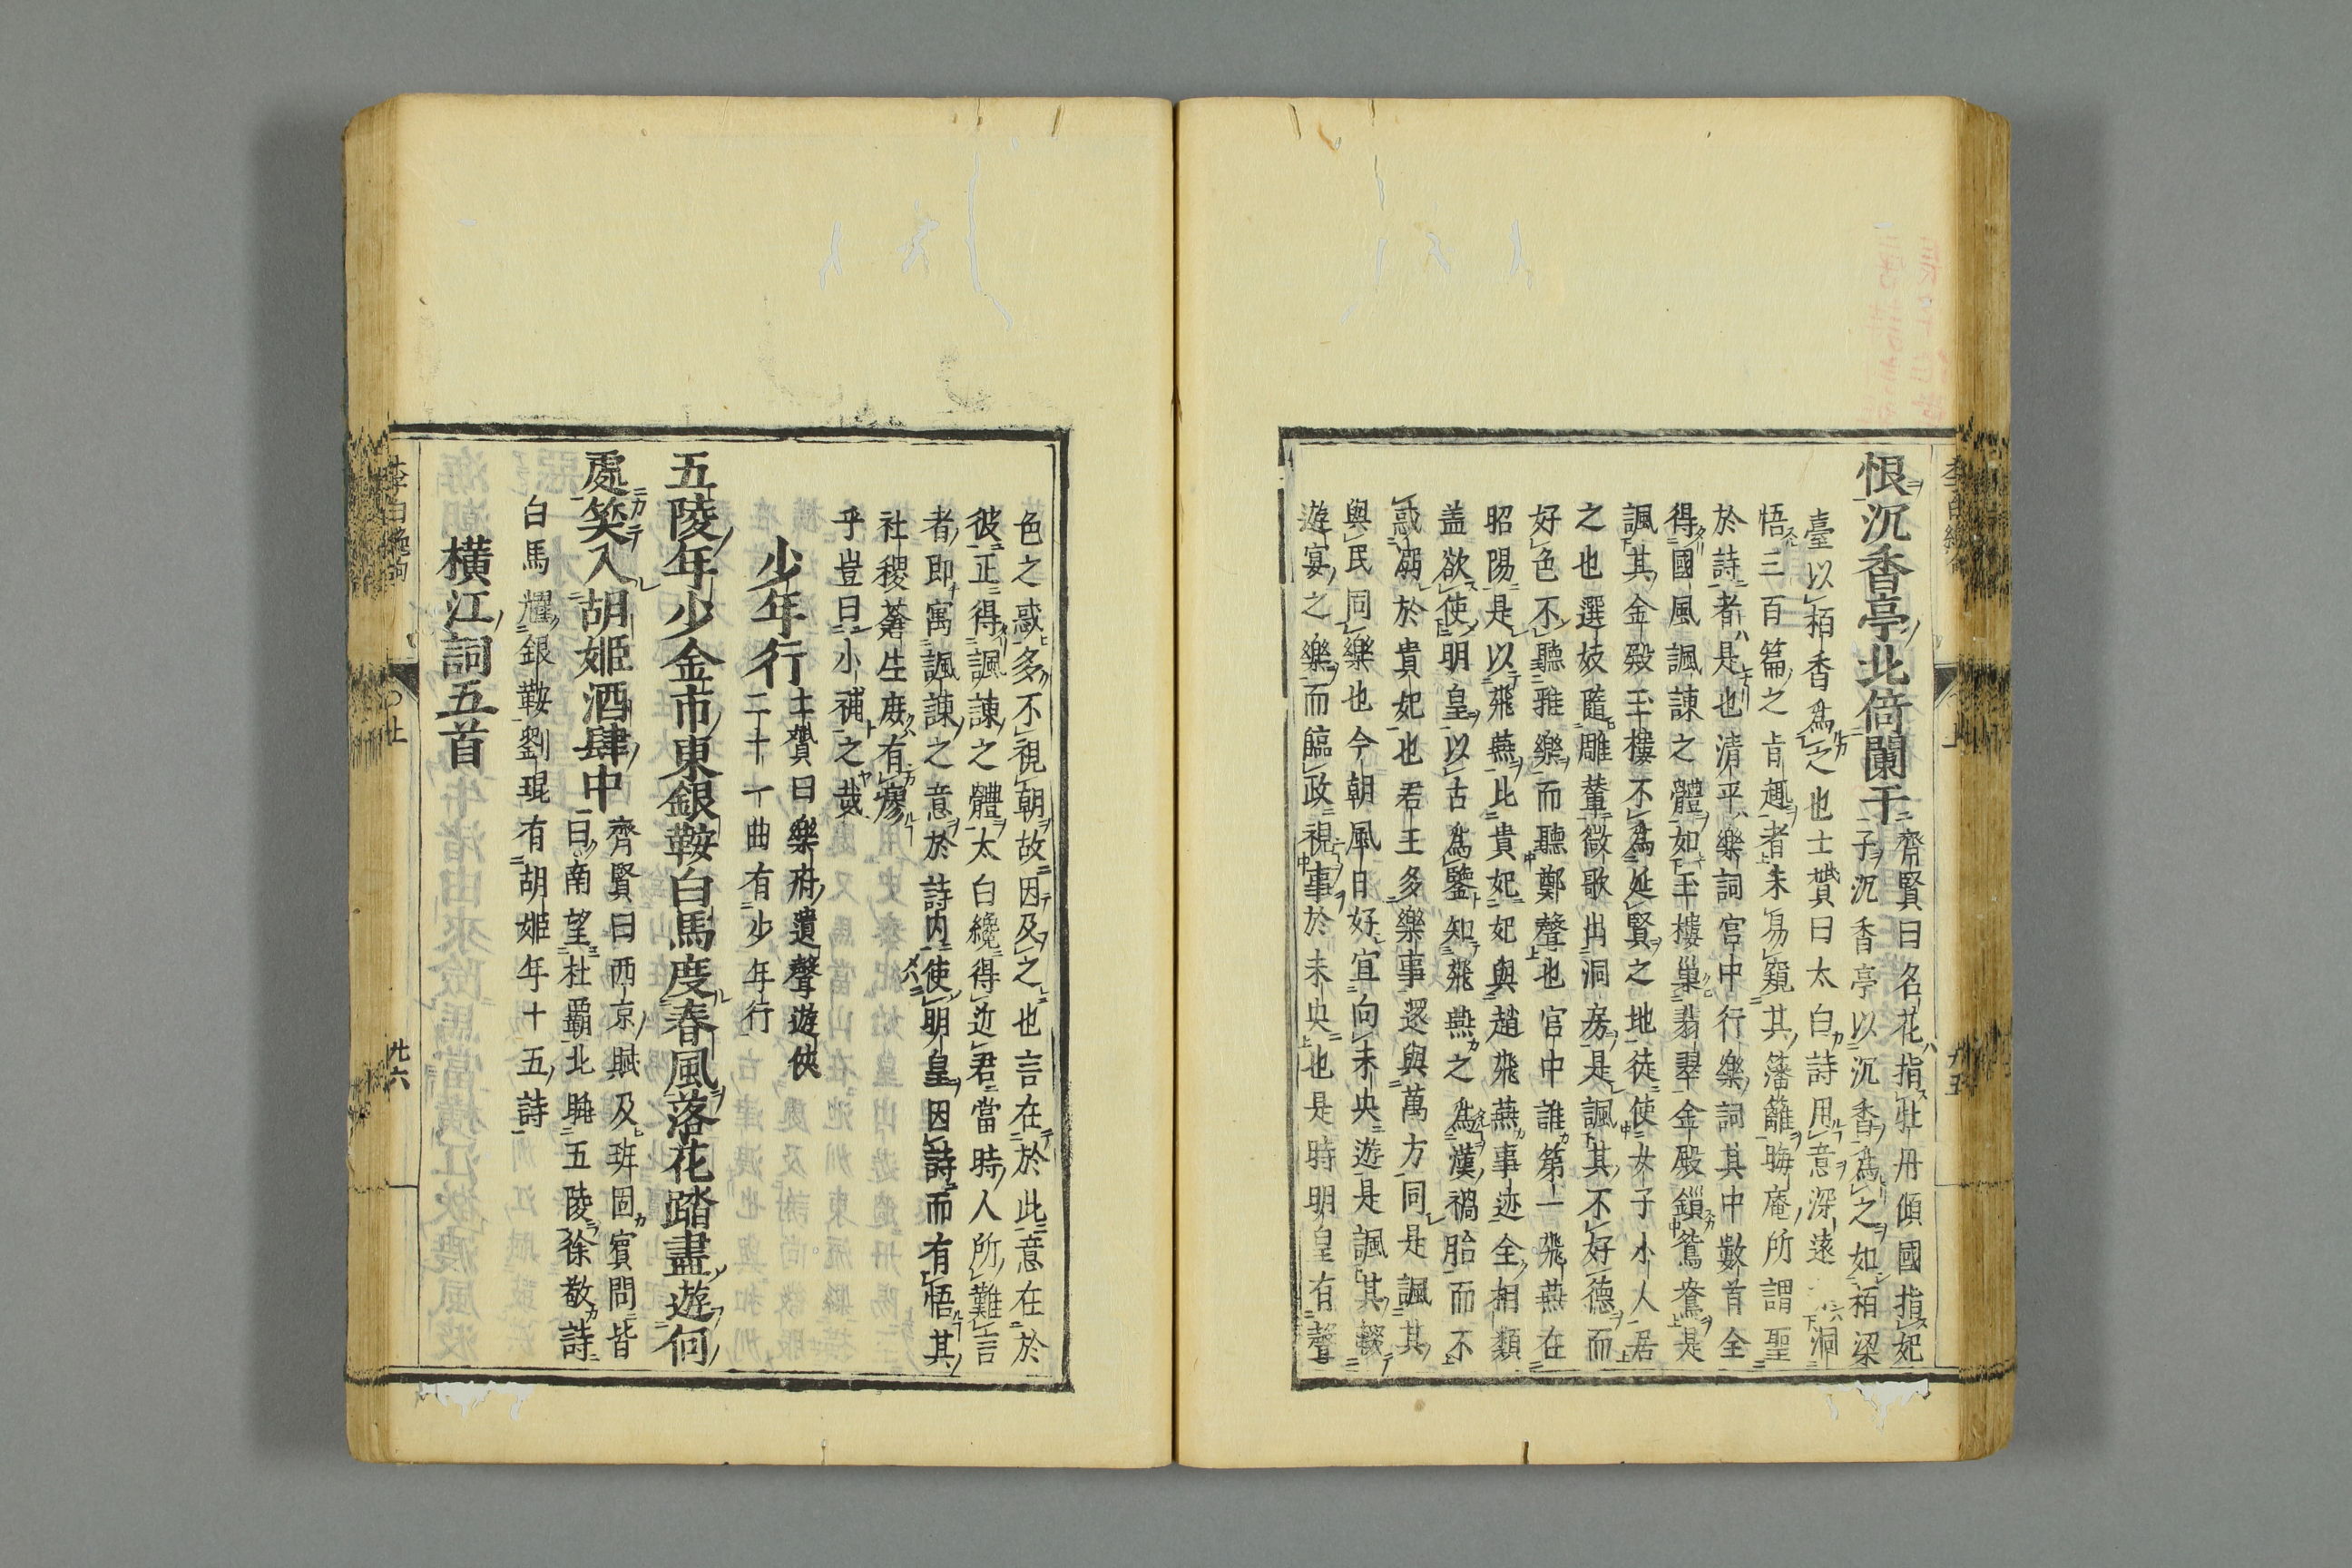 恨沉香亭北倚闌干
齊賢曰名花指牡丹傾國指妃
子沉香亭以沉香爲之如栢梁
臺以栢香爲之也士贇曰太白詩用意深遠 洞
悟三百篇之旨趣者未易窺其籓籬晦庵所謂聖
於詩者是也清平樂詞宮中行樂詞其中數首全
得國風諷諫之體如玉樓巢翡翠金殿鎖鴛鴦是
諷其金殿玉樓不爲延賢之地徒使女子小人居
之也選妓隨雕輦徵歌出洞房是諷其不好德而
好色不聽雅樂而聽鄭聲也宮中誰第一飛燕在
昭陽是以飛燕比貴妃妃與趙飛燕事迹全相類
盖欲使明皇以古爲鑒知飛燕之爲漢禍胎而不
惑溺於貴妃也君王多樂事還與萬方同是諷其
與民同樂也今朝風日好宜向未央遊是諷其輟
遊宴之樂而臨政視事於未央也是時明皇有聲
色之惑多不視朝故因及之也言在於此意在於
彼正得諷諫之體太白纔得近君當時人所難言
者即寓諷諫之意於詩内使明皇因詩而有悟其
社稷蒼生庶有瘳
乎豈曰小補之哉
少年行
士贇曰樂府遺聲遊俠
二十一曲有少年行
五陵年少金市東銀鞍白馬度春風落花踏盡遊何
處笑入胡姬酒肆中
齊賢曰西京賦及班固賓問皆
曰南望杜霸北眺五陵徐敬詩
白馬耀銀鞍劉琨有胡姬年十五詩
橫江詞五首
李白絶句
〇上
九六